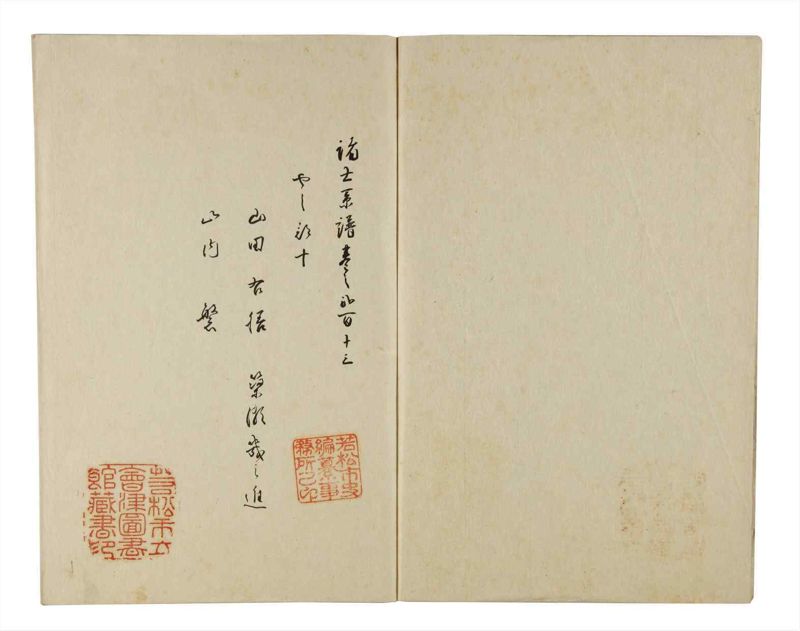 諸士系譜巻之弐百十三
や之部十
山田右膳 簗瀬幾之進
山内 繁
若松市史
編纂事
務所之印
若松市立
會津圖書
館藏書印